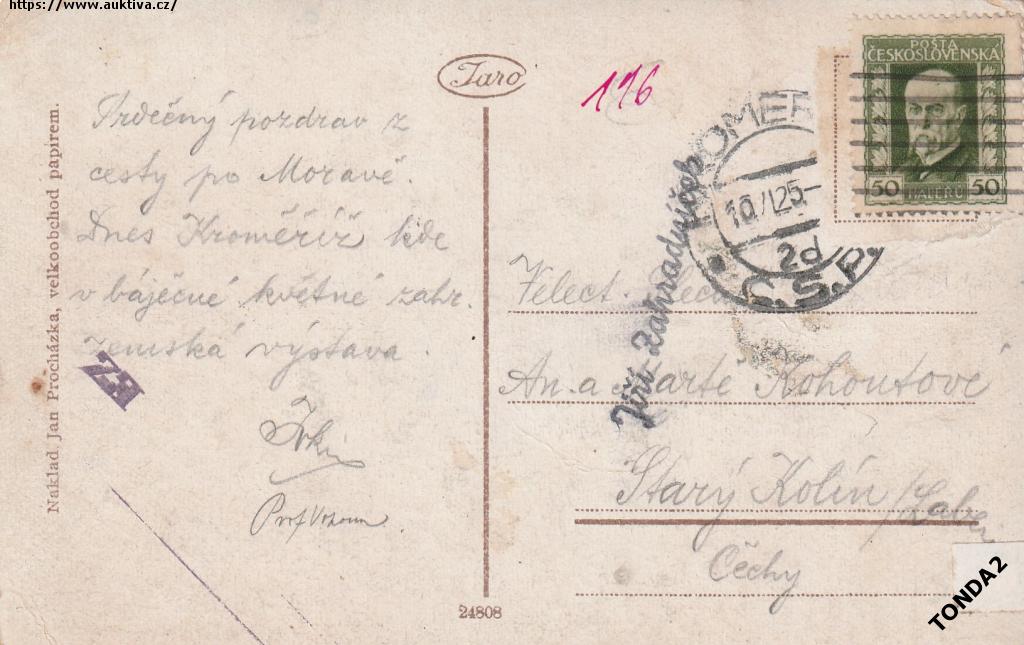 https://www.auktiva.cz/
Naklad. Jan Procházka, velkoobchod papírem.
Srdečný pozdrav z
cesty po Moravě.
Dnes Kroměříž kde
v báječné květné zahr.
zemská výstava.
Prof
24808
Jaro
116
POŠTA
ČESKOSLOVENSKA
50 HALÉŘŮ 50
KROMĚŘ
10 / 25-
2d
Č.S.P.
Jiří Zahradníček
Velect.
An. a Marte Kohoutové
Starý Kolín /Labem
Čechy
TONDA2